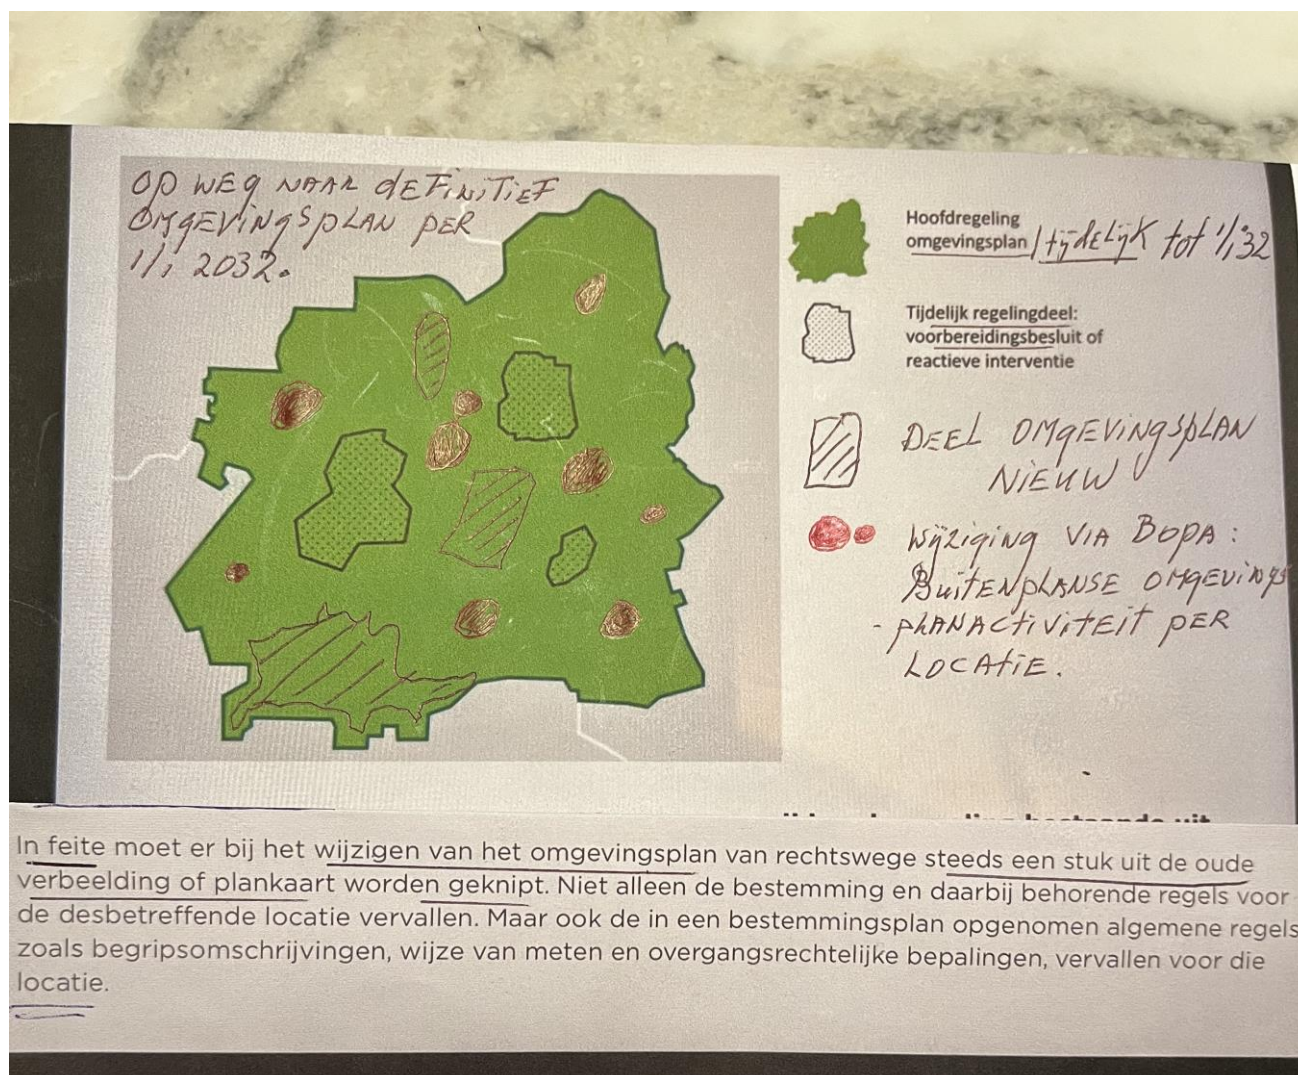 OP WEG NAAR DEFINITIEF
OMGEVINGSPLAN PER
1/1 2032.
Hoofdregeling
omgevingsplan / tijdelijk tot 1/1 32
Tijdelijk regelingdeel:
voorbereidingsbesluit of
reactieve interventie
DEEL OMGEVINGSPLAN
NIEUW
Wijziging VIA BOPA:
BUITENPLANSE OMGEVINGS
- PLANACTIVITEIT PER
LOCATIE.
In feite moet er bij het wijzigen van het omgevingsplan van rechtswege steeds een stuk uit de oude
verbeelding of plankaart worden geknipt. Niet alleen de bestemming en daarbij behorende regels voor
de desbetreffende locatie vervallen. Maar ook de in een bestemmingsplan opgenomen algemene regels
zoals begripsomschrijvingen, wijze van meten en overgangsrechtelijke bepalingen, vervallen voor die
locatie.